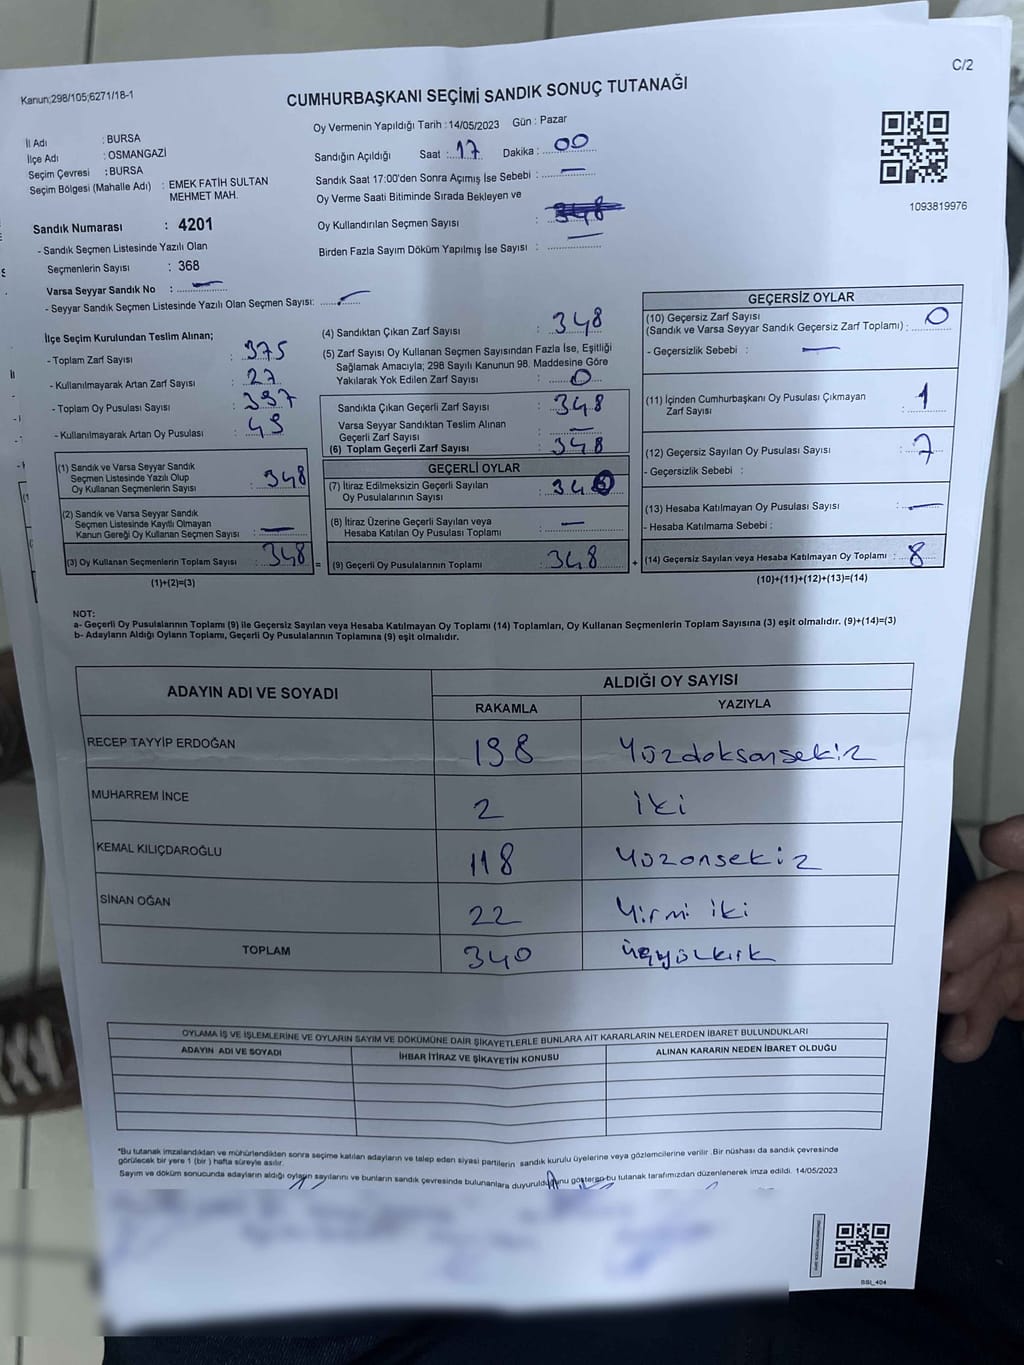 C/2
Kanun;298/105;6271/18-1
CUMHURBAŞKANI SEÇİMİ SANDIK SONUÇ TUTANAĞI
Oy Vermenin Yapıldığı Tarih : 14/05/2023 Gün : Pazar
İl Adı : BURSA
İlçe Adı : OSMANGAZİ
Seçim Çevresi : BURSA
Seçim Bölgesi (Mahalle Adı) : EMEK FATİH SULTAN
MEHMET MAH.
Sandık Numarası : 4201
- Sandık Seçmen Listesinde Yazılı Olan
Seçmenlerin Sayısı : 368
Varsa Seyyar Sandık No : —
- Seyyar Sandık Seçmen Listesinde Yazılı Olan Seçmen Sayısı:
Sandığın Açıldığı Saat : 17 Dakika : 00
Sandık Saat 17:00'den Sonra Açılmış İse Sebebi : —
Oy Verme Saati Bitiminde Sırada Bekleyen ve
Oy Kullandırılan Seçmen Sayısı : 348
Birden Fazla Sayım Döküm Yapılmış İse Sayısı :
1093819976
İlçe Seçim Kurulundan Teslim Alınan;
- Toplam Zarf Sayısı : 375
- Kullanılmayarak Artan Zarf Sayısı : 27
- Toplam Oy Pusulası Sayısı : 397
- Kullanılmayarak Artan Oy Pusulası : 49
(1) Sandık ve Varsa Seyyar Sandık
Seçmen Listesinde Yazılı Olup
Oy Kullanan Seçmenlerin Sayısı : 348
(2) Sandık ve Varsa Seyyar Sandık
Seçmen Listesinde Kayıtlı Olmayan
Kanun Gereği Oy Kullanan Seçmen Sayısı : —
(3) Oy Kullanan Seçmenlerin Toplam Sayısı : 348
(1)+(2)=(3)
(4) Sandıktan Çıkan Zarf Sayısı : 348
(5) Zarf Sayısı Oy Kullanan Seçmen Sayısından Fazla İse, Eşitliği
Sağlamak Amacıyla; 298 Sayılı Kanunun 98. Maddesine Göre
Yakılarak Yok Edilen Zarf Sayısı : 0
Sandıkta Çıkan Geçerli Zarf Sayısı : 348
Varsa Seyyar Sandıktan Teslim Alınan
Geçerli Zarf Sayısı : —
(6) Toplam Geçerli Zarf Sayısı : 348
GEÇERLİ OYLAR
(7) İtiraz Edilmeksizin Geçerli Sayılan
Oy Pusulalarının Sayısı : 348
(8) İtiraz Üzerine Geçerli Sayılan veya
Hesaba Katılan Oy Pusulası Toplamı : —
= (9) Geçerli Oy Pusulalarının Toplamı : 348 +
GEÇERSİZ OYLAR
(10) Geçersiz Zarf Sayısı
(Sandık ve Varsa Seyyar Sandık Geçersiz Zarf Toplamı) : 0
- Geçersizlik Sebebi : —
(11) İçinden Cumhurbaşkanı Oy Pusulası Çıkmayan
Zarf Sayısı : 1
(12) Geçersiz Sayılan Oy Pusulası Sayısı : 7
- Geçersizlik Sebebi :
(13) Hesaba Katılmayan Oy Pusulası Sayısı : —
- Hesaba Katılmama Sebebi :
(14) Geçersiz Sayılan veya Hesaba Katılmayan Oy Toplamı : 8
(10)+(11)+(12)+(13)=(14)
NOT:
a- Geçerli Oy Pusulalarının Toplamı (9) ile Geçersiz Sayılan veya Hesaba Katılmayan Oy Toplamı (14) Toplamları, Oy Kullanan Seçmenlerin Toplam Sayısına (3) eşit olmalıdır. (9)+(14)=(3)
b- Adayların Aldığı Oyların Toplamı, Geçerli Oy Pusulalarının Toplamına (9) eşit olmalıdır.
ADAYIN ADI VE SOYADI ALDIĞI OY SAYISI
RAKAMLA YAZIYLA
RECEP TAYYİP ERDOĞAN 198 Yüzdoksansekiz
MUHARREM İNCE 2 iki
KEMAL KILIÇDAROĞLU 118 Yüzonsekiz
SİNAN OĞAN 22 Yirmi iki
TOPLAM 340 üçyüzkırk
OYLAMA İŞ VE İŞLEMLERİNE VE OYLARIN SAYIM VE DÖKÜMÜNE DAİR ŞİKAYETLERLE BUNLARA AİT KARARLARIN NELERDEN İBARET BULUNDUKLARI
ADAYIN ADI VE SOYADI İHBAR İTİRAZ VE ŞİKAYETİN KONUSU ALINAN KARARIN NEDEN İBARET OLDUĞU
*Bu tutanak imzalandıktan ve mühürlendikten sonra seçime katılan adayların ve talep eden siyasi partilerin sandık kurulu üyelerine veya gözlemcilerine verilir .Bir nüshası da sandık çevresinde
görülecek bir yere 1 (bir ) hafta süreyle asılır.
Sayım ve döküm sonucunda adayların aldığı oyların sayılarını ve bunların sandık çevresinde bulunanlara duyurulduğunu gösteren bu tutanak tarafımızdan düzenlenerek imza edildi. 14/05/2023
BSI_404